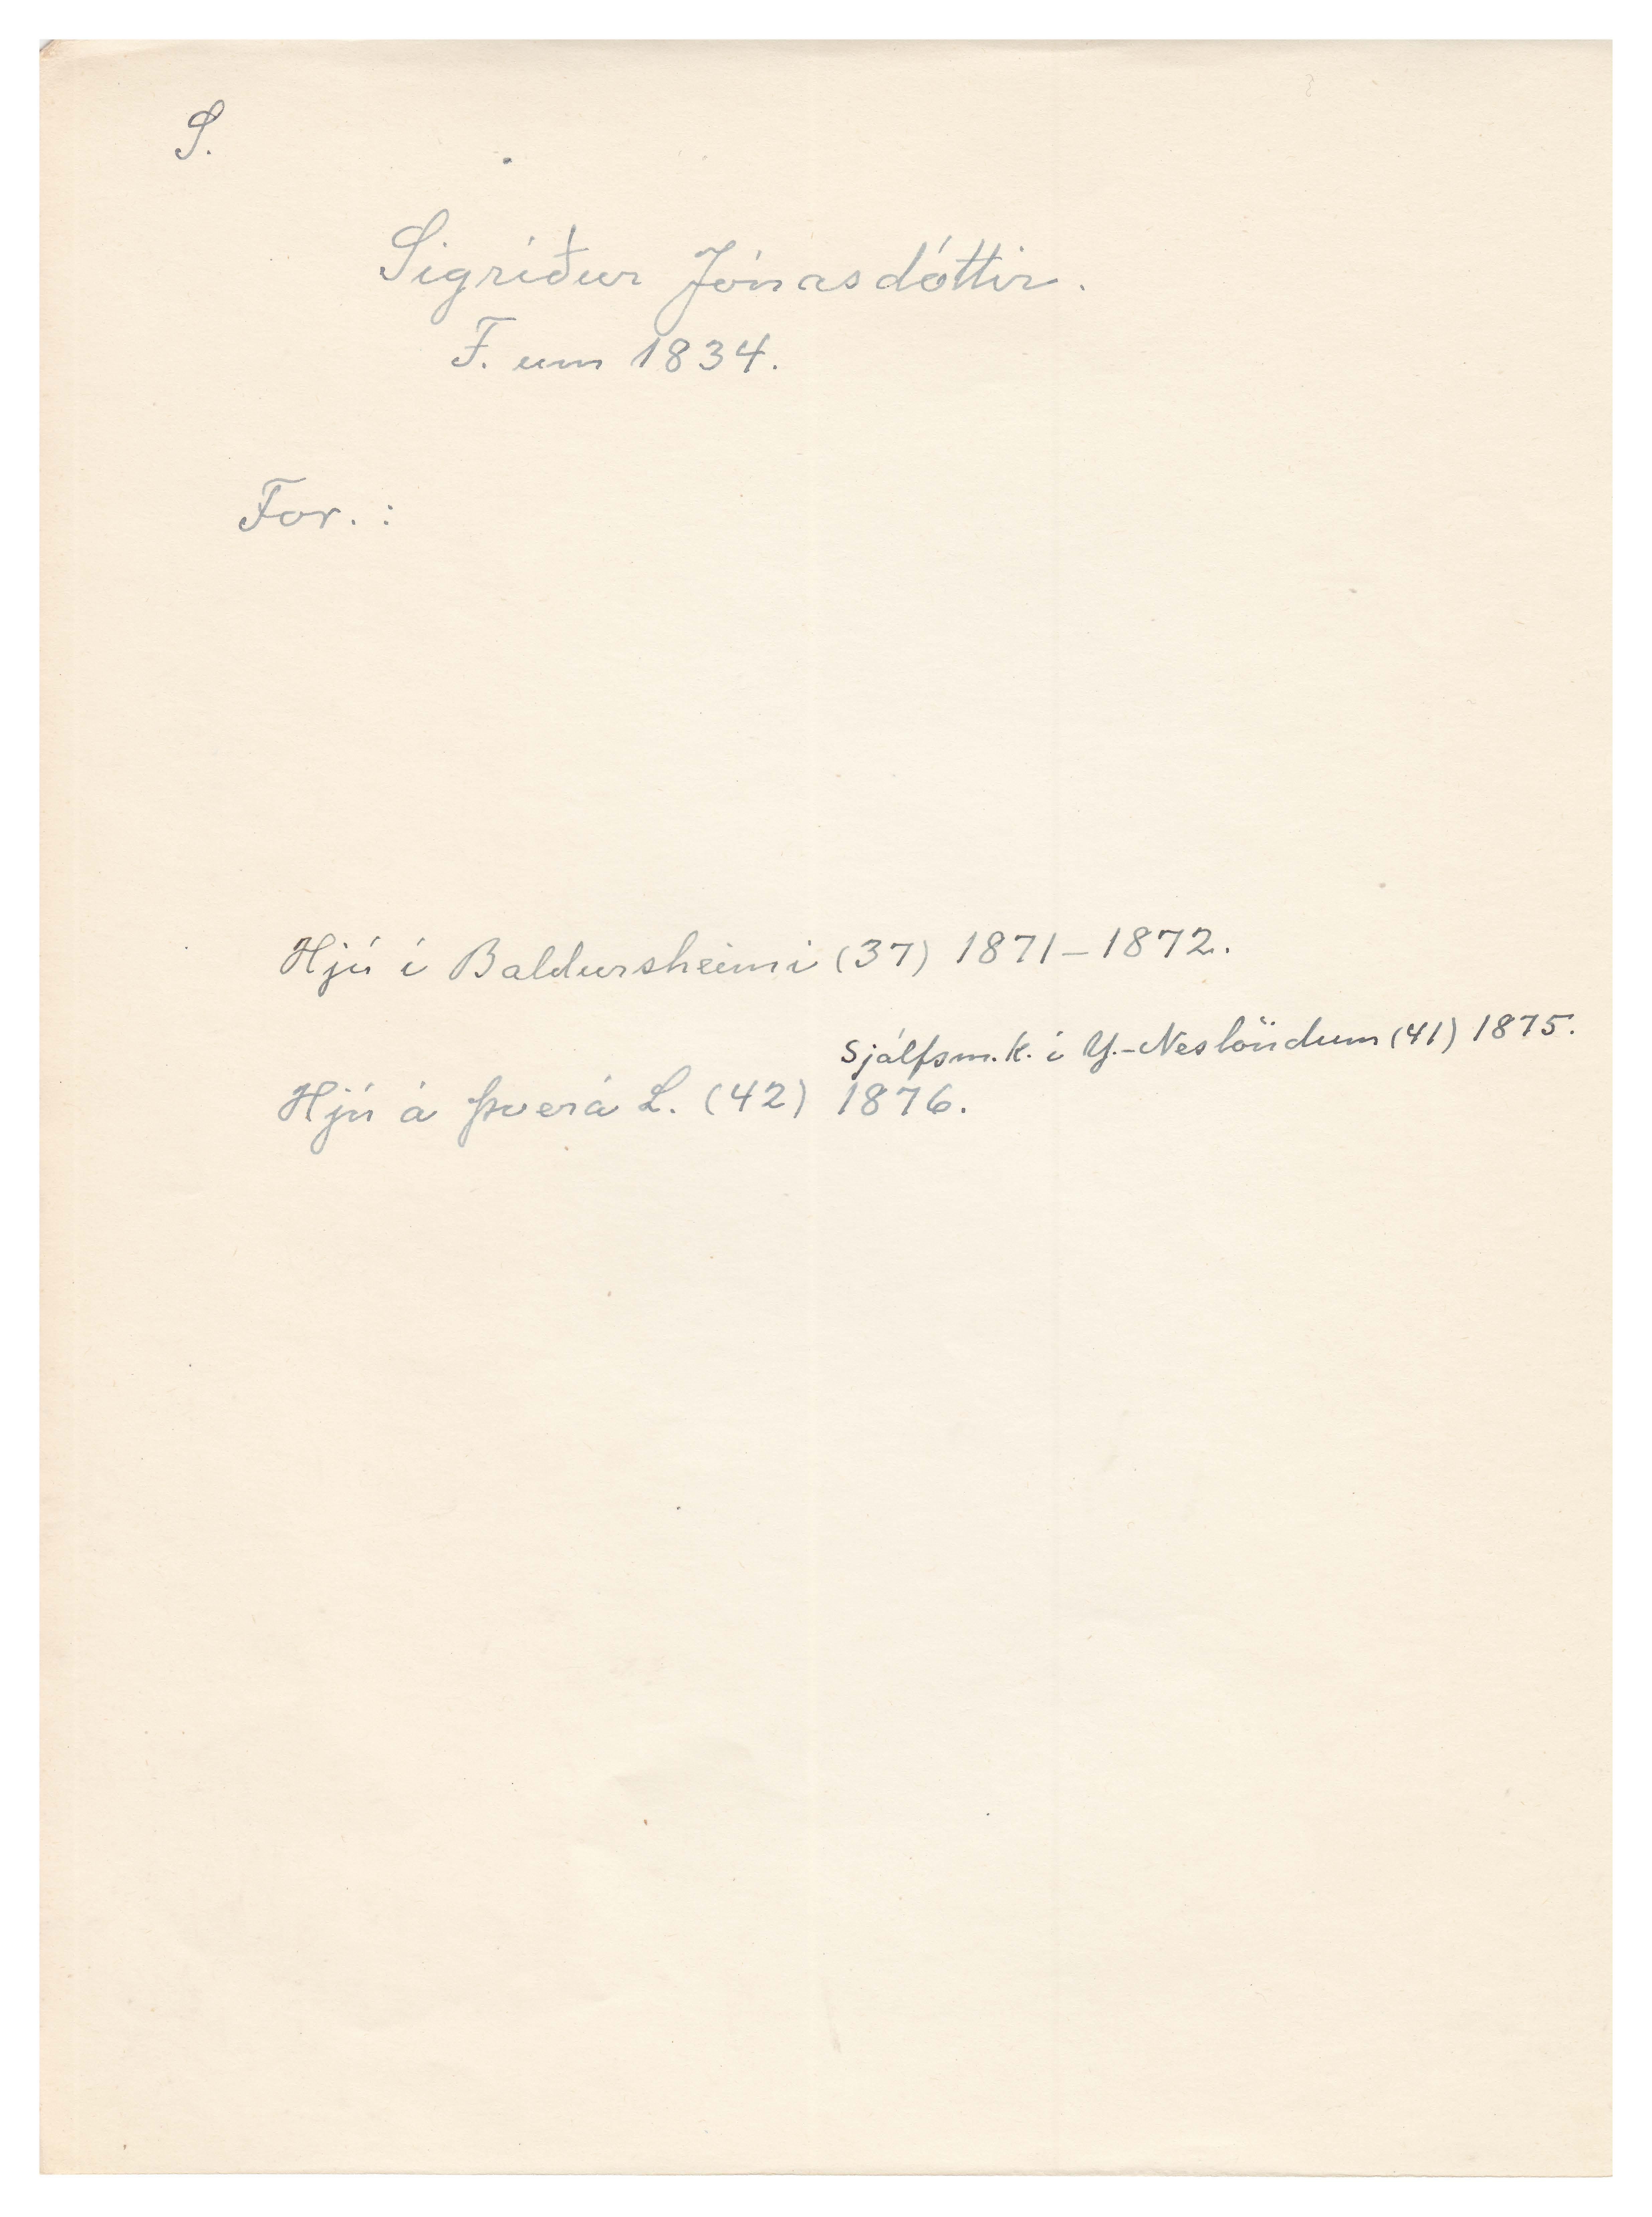 S.
Sigríður Jónasdóttir.
F. um 1834.
For. :
Hjú í Baldursheimi (37) 1871–1872.
Sjálfsm.k. í Y.-Neslöndum (41) 1875.
Hjú á Þverá L. (42) 1876.